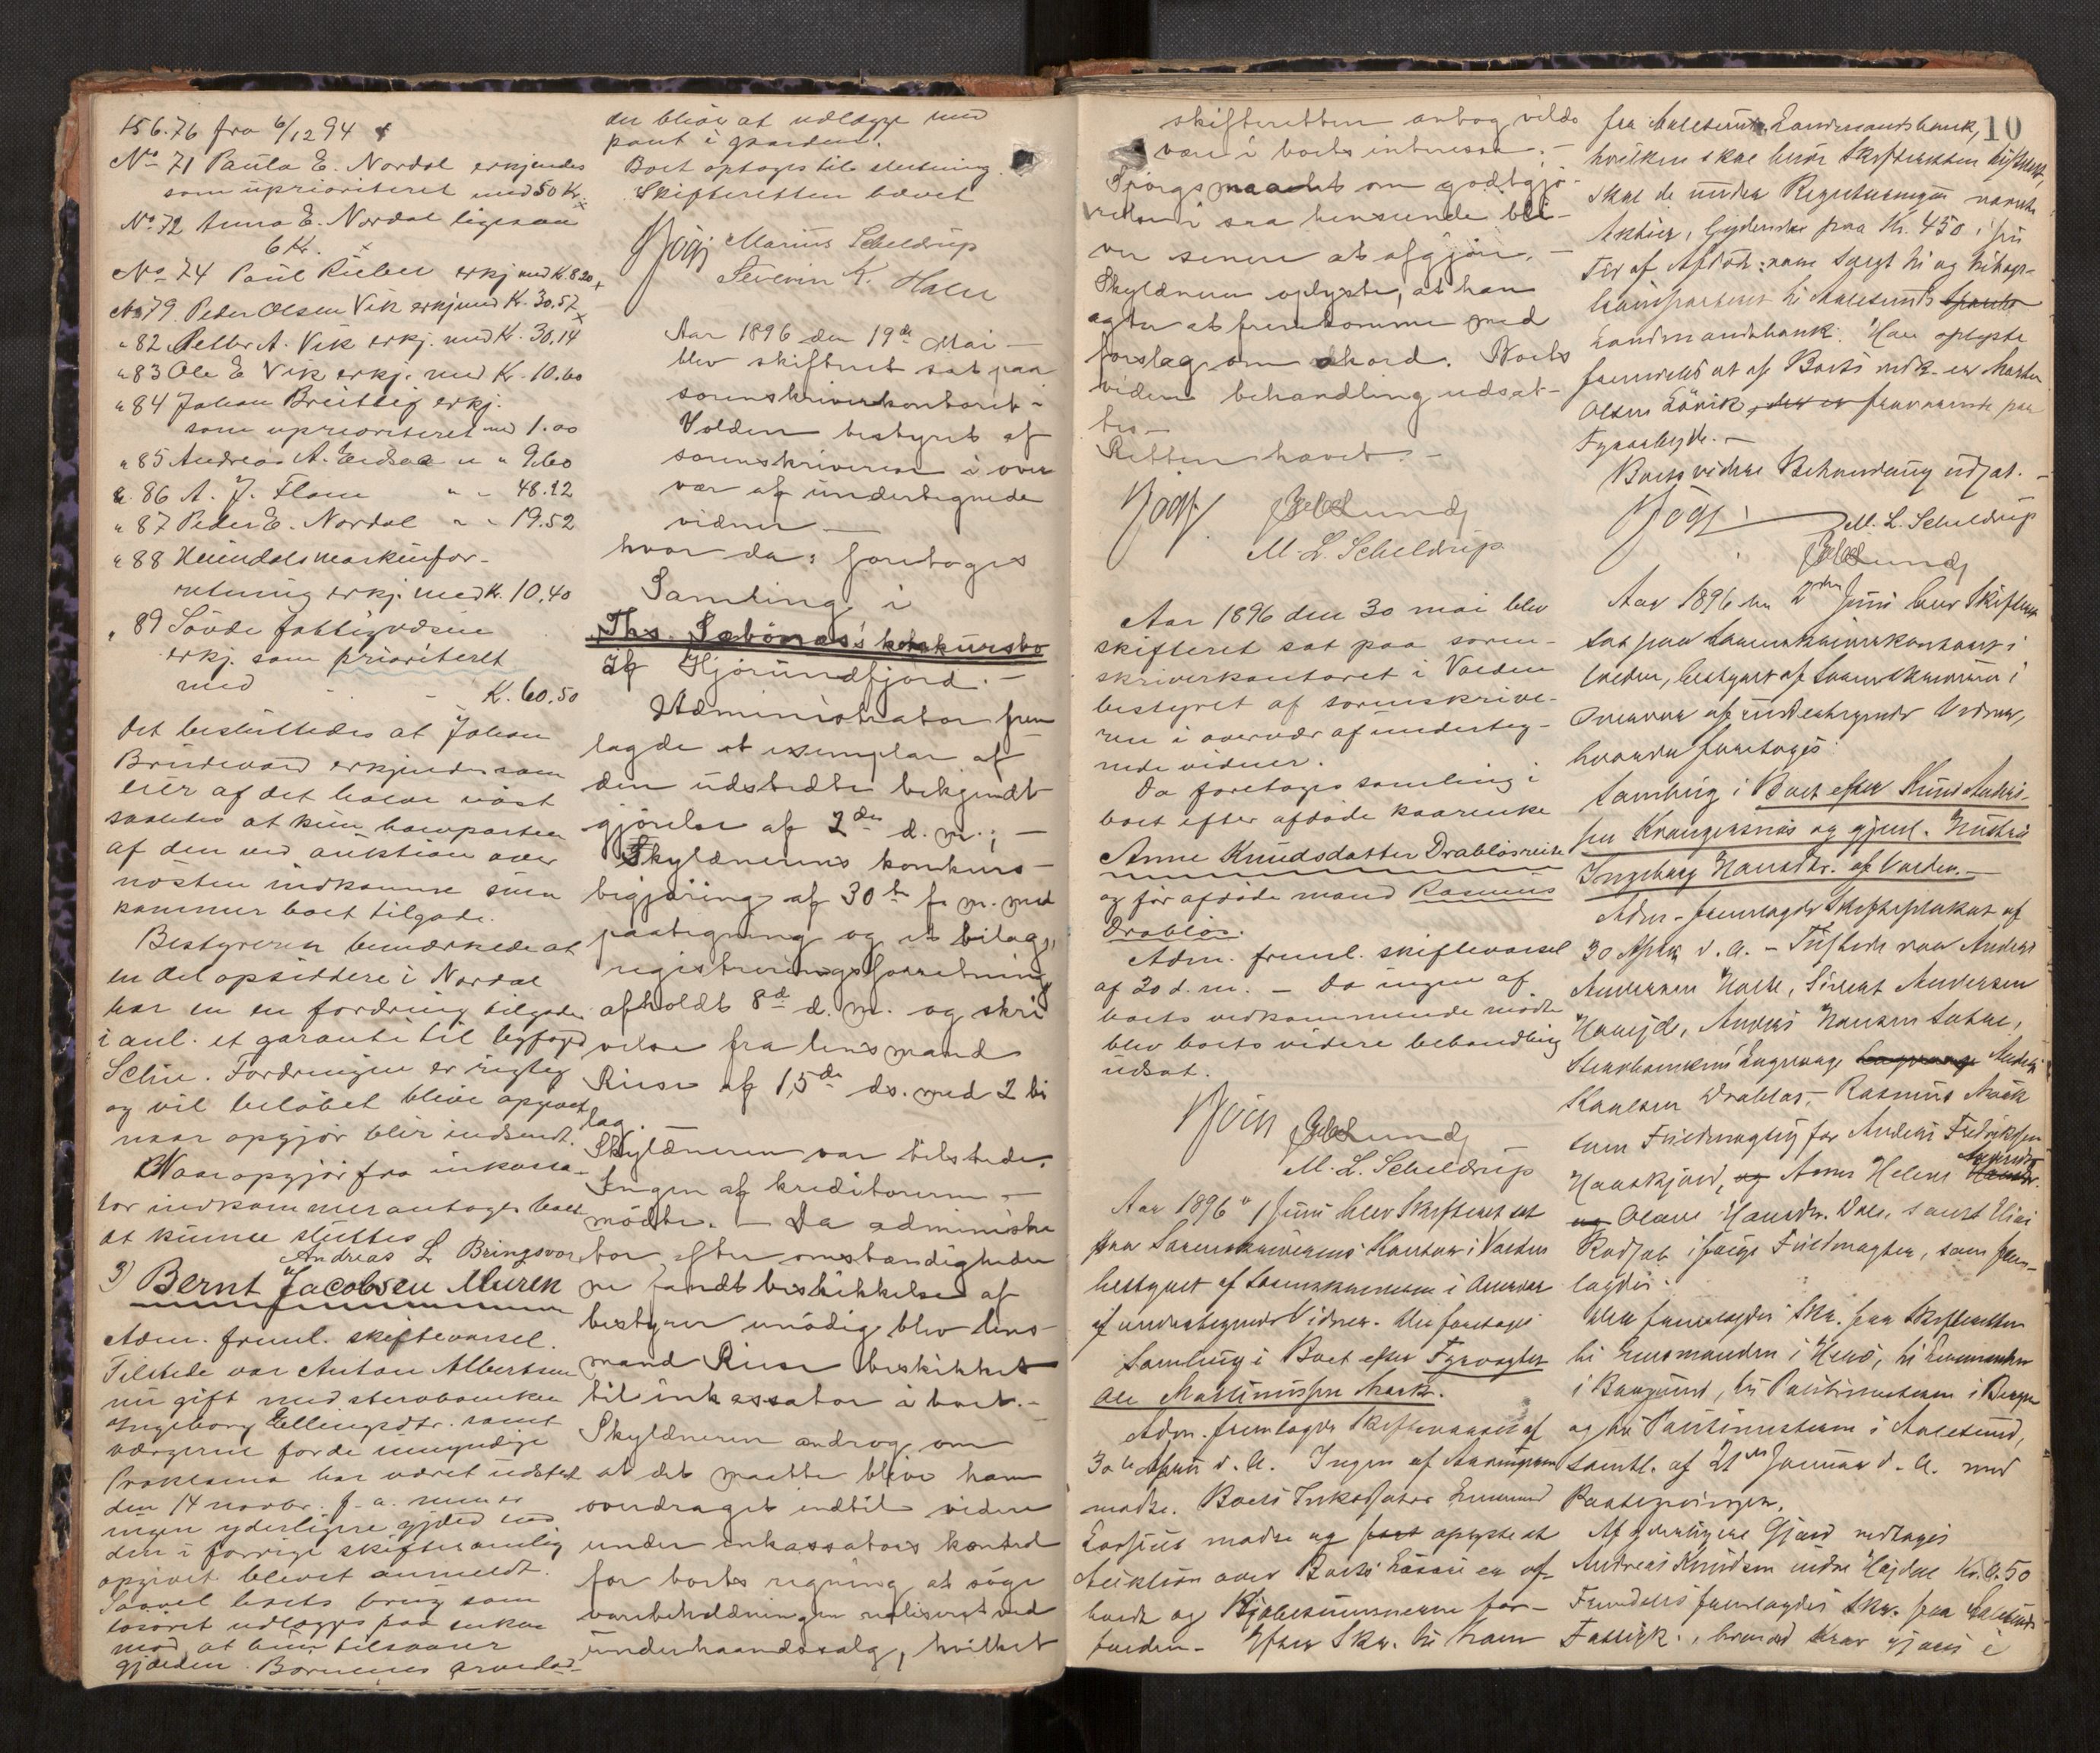 156.76 fra 6/12 94
No 71 Paula E. Nordal erkjendes
som uprioriteret med 50 Kr.
No 72 Anna E. Nordal ligesaa
6 Kr.
No 74 Paul Rieber erkj med K. 8.20
No 79. Peder Olsen Vik erkj med Kr. 30.57
" 82 Petter A. Vik erkj. med Kr. 30.14
" 83 Ole E Vik erkj. med Kr. 10.60
" 84 Johan Breitteig erkj.
som uprioriteret med 1.00
" 85 Andreas A. Eidsaa " " 9.60
" 86 A. J. Flom " " 48.12
" 87 Peder E. Nordal " " 19.52
" 88
retning erkj. med K. 10.40
" 89 Søvde fattigvæsen
erkj. som prioriteret
med K. 60.50
Det besluttedes at Johan
erkjendes som
eier af det halve nøst
saaledes at kun halvparten
af den ved auktion over
nøsten indkomne sum
kommer boet tilgode.
Bestyreren bemærkede at
en del opsiddere i Nordal
har en en fordring tilgode
i anl. et garanti til
Fordringen er rigtig
og vil beløbet blive opgivet
naar opgjør blir indsendt.
Naar opgjør fra inkassa-
tor indkommer antages boet
at kunne sluttes
Andreas L. Bringsvor
3) Bernt Jacobsen Muren
Adm. freml. skiftevarsel.
Tilstede var Anton Albertsen
nu gift med sterboenken
Ingeborg Ellingsdtr. samt
værgerne for de umyndige
Proklama har været udstedt
den 14 novbr. f. a. men er
ingen yderligere gjæld end
den i forrige skiftesamling
opgivet blevet anmeldt.
Saavel boets brug som
løsøret udlægges paa enken
mod at hun tilsvarer
gjælden. Børnenes arvelod-
der bliver at udlægge med
pant i gaarden.
Boet optoges til slutning.
Skifteretten hævet
Marius Scheldrup
Severin K. Halse
Aar 1896 den 19de Mai
blev skifteret sat paa
sorenskriverkontoret i
Volden bestyret af
sorenskriveren i over
vær af undertegnede
vidner
hvor da foretoges
Samling i
Ths. Sæbønæs's konkursbo
af Hjørundfjord.
Administrator frem
lagde et exemplar af
den udstedte bekjendt
gjørelse af 2den d. m.;
Skyldnerens konkurs-
begjæring af 30te f. m. med
paategning og et bilag,
registreringsforretning
afholdt 8de d. m. og skri
velse fra lensmand
Riise af 15de ds. med 2 bi
lag.
Skyldneren var tilstede.
Ingen af kreditorerne
mødte. Da administra
tor efter omstændighede
ne fandt beskikkelse af
bestyrer unødig blev lens-
mand Riise beskikket
til inkassator i boet.
Skyldneren androg om
at det maatte blive ham
overdraget indtil videre
under inkassators kontrol
for boets regning at søge
varebeholdningen realiseret ved
underhaandssalg, hvilket
skifteretten antog vilde
være i boets interesse.
Spørgsmaalet om godtgjø-
relsen i saa henseende bli-
ver senere at afgjøre.
Skyldneren oplyste, at han
agter at fremkomme med
forslag om akord. Boets
videre behandling udsat-
tes
Retten hævet.
M. L. Scheldrup
Aar 1896 den 30 mai blev
skifteret sat paa soren-
skriverkontoret i Volden
bestyret af sorenskrive-
ren i overvær af underteg-
nede vidner.
Da foretoges samling i
boet efter afdøde kaarenke
Anne Knudsdatter Drabløs
og før afdøde mand Rasmus
Drabløs.
Adm. freml. skiftevarsel
af 20 d. m. – Da ingen af
boets vedkommende mødte
blev boets videre behandling
udsat.
M. L. Scheldrup
Aar 1896 1 Juni blev Skifteret sat
paa Sorenskriverens Kontor i Volden
bestyret af Sorenskriveren i Overvær
af undertegnede Vidner. Der foretoges
Samling i Boet efter Fyrvogter
Ole Martinussen Mork.
Adm. fremlagde Skiftevarsel af
30te April d. A. Ingen af Arvingerne
mødte. Boets Inkassator Lensmand
mødte og oplyste at
Auktion over Boets Løsøre er af-
holdt og Kjøbesummerne for-
falden. Efter Skr. til ham
10
fra Aalesunds Landmandsbank,
hvilken skal bero Skifteretten tilstillet,
skal de under Registreringen nævnte
Aktier, lydende paa Kr. 450 i sin
Tid af Afdøde være solgt til og
til Aalesunds
Landmandsbank. Han oplyste
fremdeles at af Boets vedk. er Marthe
Olsen Løvik fraværende paa
Boets videre Behandling udsat.
M. L. Scheldrup
Aar 1896 den 2den Juni blev Skifteret
sat paa Sorenskriverkontoret i
Volden, bestyret af Sorenskriveren i
Overvær af undertegnede Vidner,
hvorda foretoges:
Samling i Boet efter Knud
Krangersnæs og gjenl. Hustru
Ingeborg Hansdtr. af Volden.
Adm. fremlagde Skifteplakat af
30 April d. A. – Tilstede var Anders
Andersen Sivert Andersen
Anders Hansen
Drabløs, Rasmus
som Fuldmægtig for Anders Fredriksen
Anne Helene
Olave Hansdtr. samt Elias
ifølge Fuldmagter, som frem-
lagdes.
Der fremlagdes Skr. fra Skifteretten
til Lensmanden i Herø, til Lensmanden
i Borgund, til Politimesteren i Bergen
og til Politimesteren i Aalesund,
samtl. af 21de Januar d. A. med
Paategninger.
Af yderligere Gjæld vedtoges
Andreas Knudsen Kr. 9.50
Fremdeles fremlagdes Skr. fra
Fattigk., hvorved Krav gjøres i